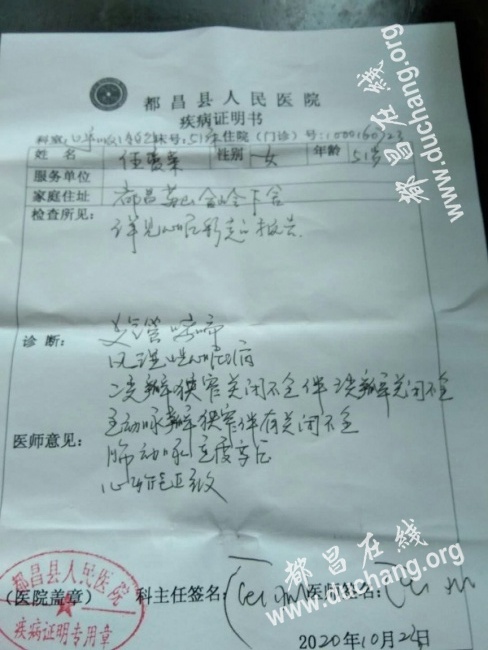 都昌县人民医院
疾病证明书
科室: 床号: 51床 住院(门诊)号:
姓 名 性别 女 年龄 51岁
服务单位
家庭住址 都昌
检查所见:
详见心脏彩超报告
诊 断:
风湿性心脏病
二尖瓣狭窄关闭不全伴 尖瓣关闭不全
主动脉瓣狭窄伴有关闭不全
医师意见:
肺动脉 度高压
心功能
(医院盖章) 科主任签名: 医师签名:
都昌县人民医院
疾病证明专用章
2020年10月2 日
都昌在线
www.duchang.org
都昌在线
www.duchang.org